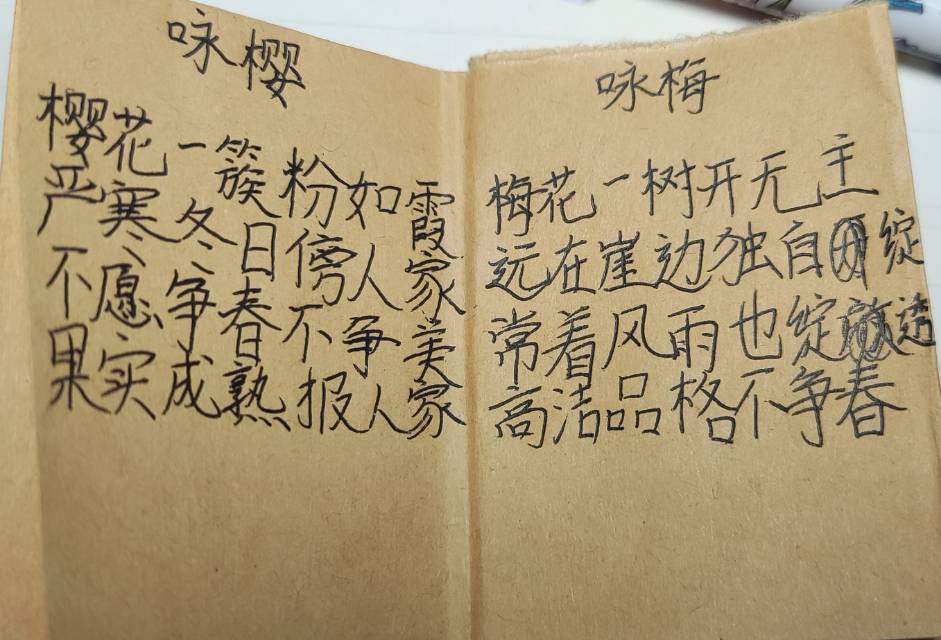 咏樱
樱花一簇粉如霞
严寒冬日傍人家
不愿争春不争美
果实成熟报人家
咏梅
梅花一树开无主
远在崖边独自绽
常着风雨也绽透
高洁品格不争春